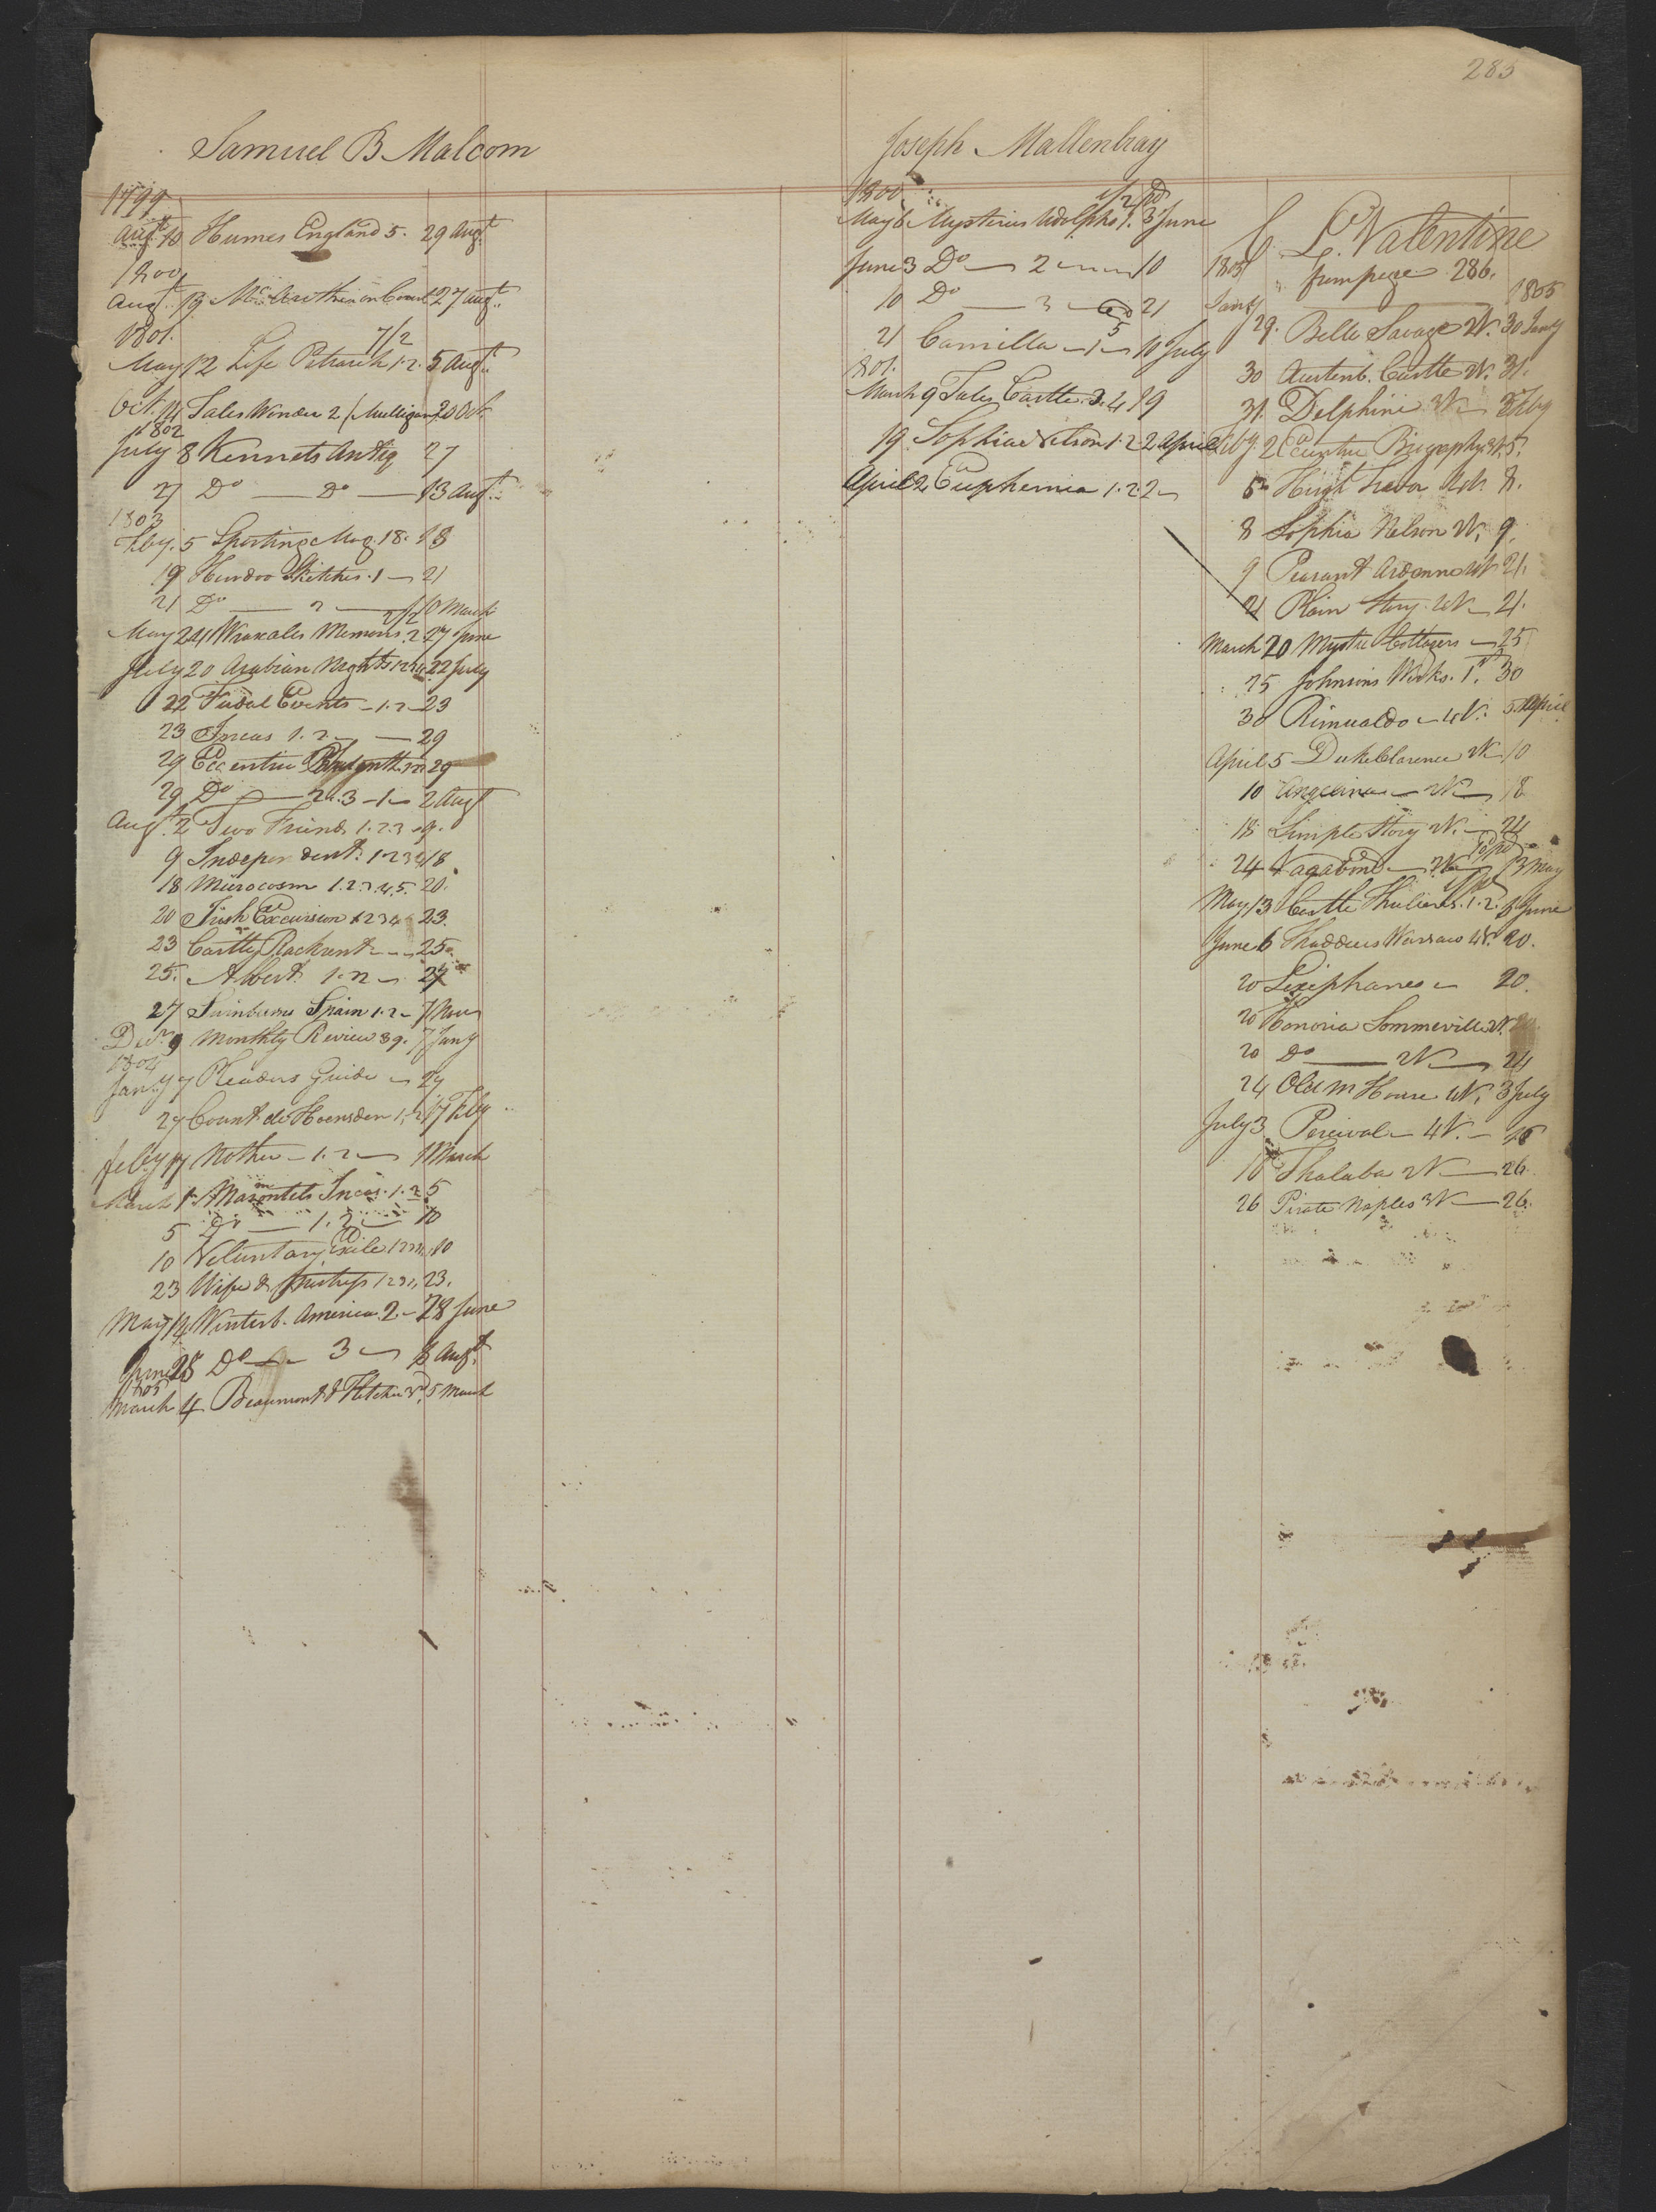 285
Samuel B Malcom
1799
Augt 10 Humes England 5. 29 Augt
1800
Augt 19 McArthur on Court 27 Augt
1801.
7/2
May 12 Life Petrarch 1.2. 5 Augt
Oct. 14 Tales Wonder 2 (Mulligan) 20 Oct.
1802
July 8 Kennets Antiq 27
27 Do — Do — 13 Augt
1803
Feby. 5 Sporting Mag 18. 18
19 Hindoo Sketches. 1 — 21
21 Do — 2 — 10 March
2/2
May 24 Wraxales Memoirs. 2 27 June
July 20 Arabian Nights 1234 22 July
22 Fudal Events — 1.2 — 23
23 Incas 1.2 — 29
29 Eccentric 29
29 Do — 2.3 — 1 — 2 Augt
Augt. 2 Two Friends 1.2.3 9.
9 Independent. 1234 18
18 Microcosm 1.2.3.4.5. 20.
20 Irish Excursion 1234 23.
23 Castle Rackrent — 25
25. Albert 1.2 — 27
27 Swinburns Spain 1.2 — 7 Nov
Decr 9 Monthly Review 39. 7 Jany
1804
Jany 7 Readers Guide — 27
27 Count de Hoensden 1.2 17 Feby
Feby 17 Mother — 1.2 — 1 March
March 1 Marmontels Incas. 1.2 5
5 Do — 1.2 — 10
10 Voluntary Exile 10
23 Wife & Mistress 1234 23.
May 14 Winterb. America 2 — 28 June
June 28 Do — 3 — 8 Augt.
1805
March 4 Beaumont & Fletcher 3d 5 March
Joseph Mallenbray
1800
1/2 pd
May 6 Mysteries Udolpho 1. 3 June
June 3 Do — 2 — 10
10 Do — 3 — 21
5
21 Camilla — 1 — 10 July
1801.
March 9 Tales Castle 3.4 19
19 Sophia Nelson 1.2 2 April
April 2 Euphemia 1.2.2 —
C. L. Valentine
1805 from page 286.
Jany 1805
29. Belle Savage 2V. 30 Jany
30 Austenb. Castle 2V. 31.
31. Delphine 3V — 2 Feby
Feby. 2 Eccentric Biography 5.
5 Hugh Trevor 8.
8 Sophia Nelson 2V. 9.
9 Peasant Ardenne 21.
21 Plain Story 21.
March 20 Mystic Cottagers — 25
25 Johnsons Works. 1st. 30
30 Rimualdo — 4V. 5 April
April 5 Duke Clarence 10
10 Angelina — 2V — 18
18 Simple Story 2V. — 24
24 Vagabond — 2V — 13 May
May 13 Castle 1.2. 6 June
June 6 Thaddeus Warsaw 4V. 20.
20 Lexiphanes — 20.
20 Honoria Sommerville 2V. 20
20 Do — 2V — 24
24 Old M House 4V. 3 July
July 3 Percival — 4V. — 16
16 Thalaba 2V — 26
26 Pirate Naples 3V — 26.